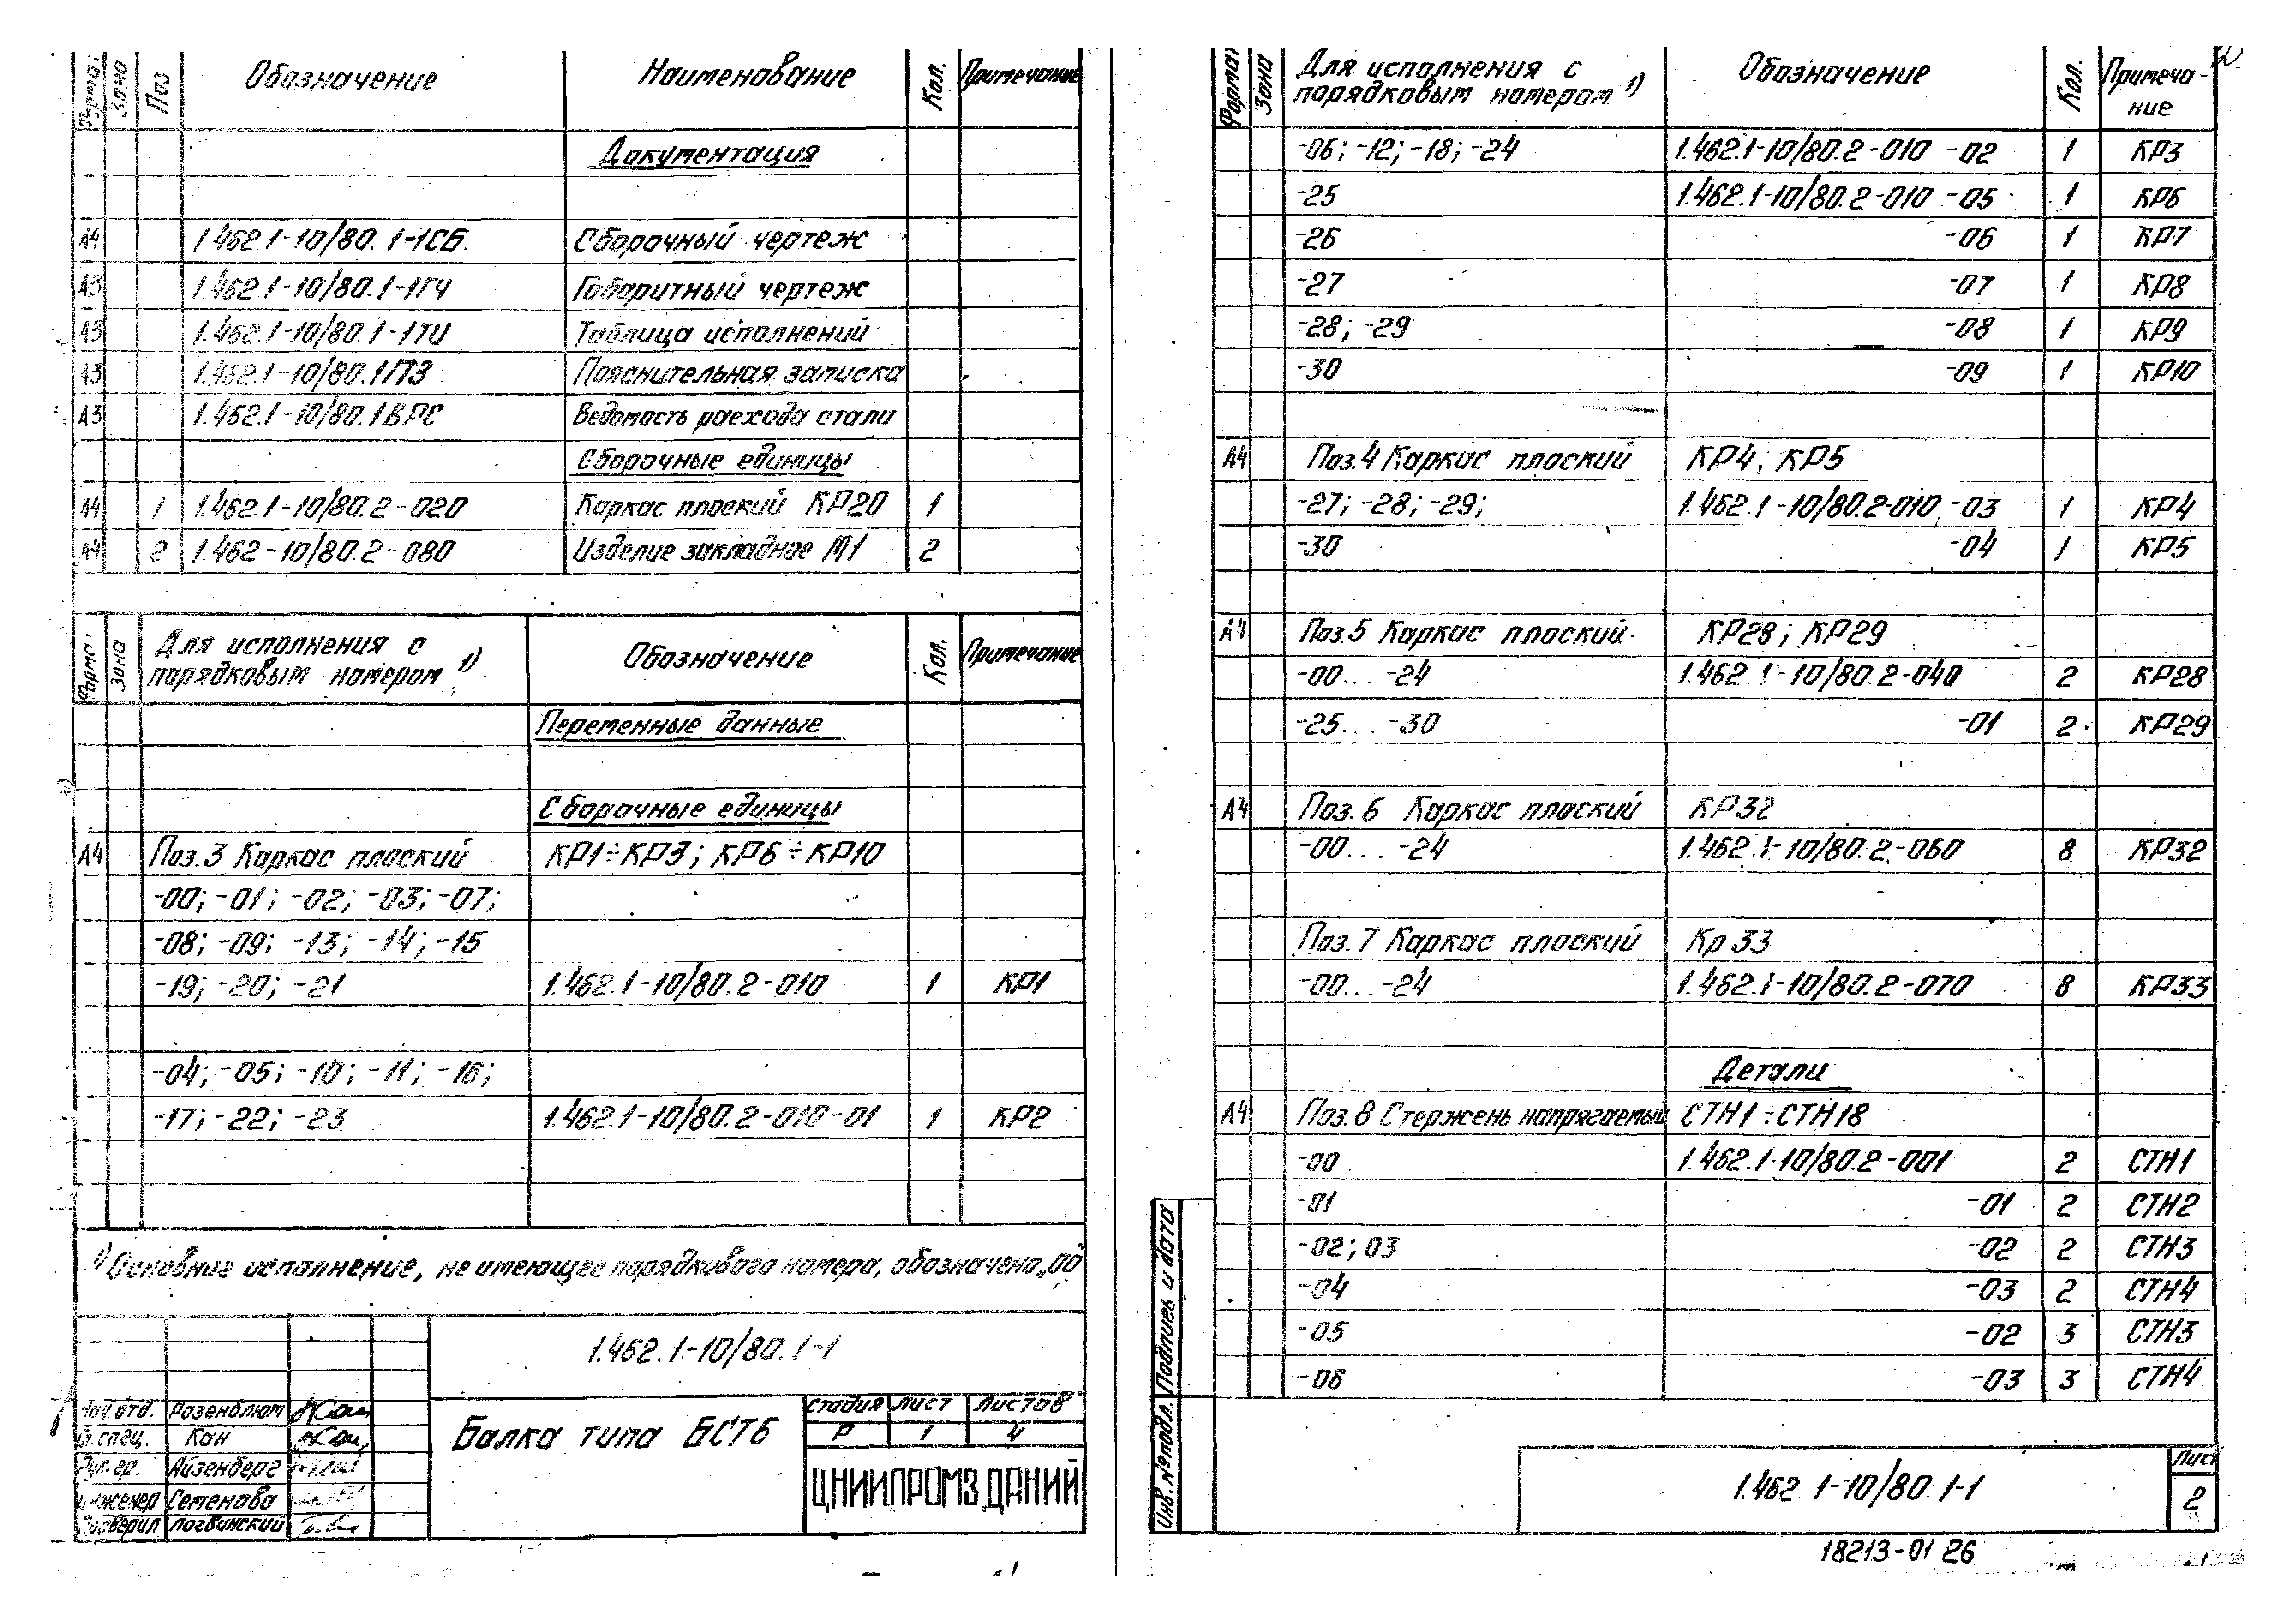 Формат Зона Поз Обозначение Наименование Кол. Примечание
Документация
А4 1.462.1-10/80.1-1СБ Сборочный чертеж
А3 1.462.1-10/80.1-1ГЧ Габаритный чертеж
А3 1.462.1-10/80.1-1ТИ Таблица исполнений
А3 1.462.1-10/80.1ПЗ Пояснительная записка
А3 1.462.1-10/80.1ВРС Ведомость расхода стали
Сборочные единицы
А4 1 1.462.1-10/80.2-020 Каркас плоский КР20 1
А4 2 1.462-10/80.2-080 Изделие закладное М1 2
Формат Зона Для исполнения с порядковым номером 1) Обозначение Кол. Примечание
Переменные данные
Сборочные единицы
А4 Поз.3 Каркас плоский КР1÷КР3; КР6÷КР10
-00; -01; -02; -03; -07;
-08; -09; -13; -14; -15
-19; -20; -21 1.462.1-10/80.2-010 1 КР1
-04; -05; -10; -11; -16;
-17; -22; -23 1.462.1-10/80.2-010-01 1 КР2
1) Основние исполнение, не имеющее порядкового номера, обозначено „00"
1.462.1-10/80.1-1
Нач.отд. Розенблюм
Гл.спец. Кан
Рук.гр. Айзенберг
Инженер Семенова
Проверил Логвинский
Балка типа БСТ6
Стадия Лист Листов
Р 1 4
ЦНИИПРОМЗДАНИЙ
Формат Зона Для исполнения с порядковым номером 1) Обозначение Кол. Примечание
-06; -12; -18; -24 1.462.1-10/80.2-010 -02 1 КР3
-25 1.462.1-10/80.2-010 -05 1 КР6
-26 -06 1 КР7
-27 -07 1 КР8
-28; -29 -08 1 КР9
-30 -09 1 КР10
А4 Поз.4 Каркас плоский КР4, КР5
-27; -28; -29; 1.462.1-10/80.2-010 -03 1 КР4
-30 -04 1 КР5
А4 Поз.5 Каркас плоский КР28; КР29
-00... -24 1.462.1-10/80.2-040 2 КР28
-25... -30 -01 2 КР29
А4 Поз.6 Каркас плоский КР32
-00... -24 1.462.1-10/80.2-060 8 КР32
Поз.7 Каркас плоский Кр33
-00...-24 1.462.1-10/80.2-070 8 КР33
Детали
А4 Поз.8 Стержень напрягаемый СТН1÷СТН18
-00 1.462.1-10/80.2-001 2 СТН1
-01 -01 2 СТН2
-02; 03 -02 2 СТН3
-04 -03 2 СТН4
-05 -02 3 СТН3
-06 -03 3 СТН4
Инв.№подл. Подпись и дата
1.462.1-10/80.1-1
Лист
2
18213-01 26